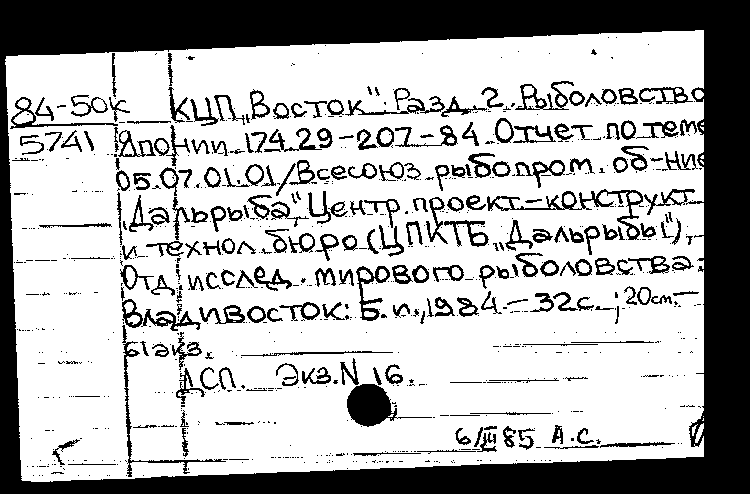 84-50к КЦП „Восток": Разд. 2. Рыболовство
5741 Японии 174.29-207-84. Отчет по теме
05.07.01.01/Всесоюз. рыбопром. об-ние
„Дальрыба", Центр. проект.-конструкт.
и технол. бюро (ЦПКТБ „Дальрыбы"),
Отд. исслед. мирового рыболовства.
Владивосток: Б.и., 1984.-32с.; 20см.-
61экз.
ДСП. Экз.N 16.
6/III 85 А.С.